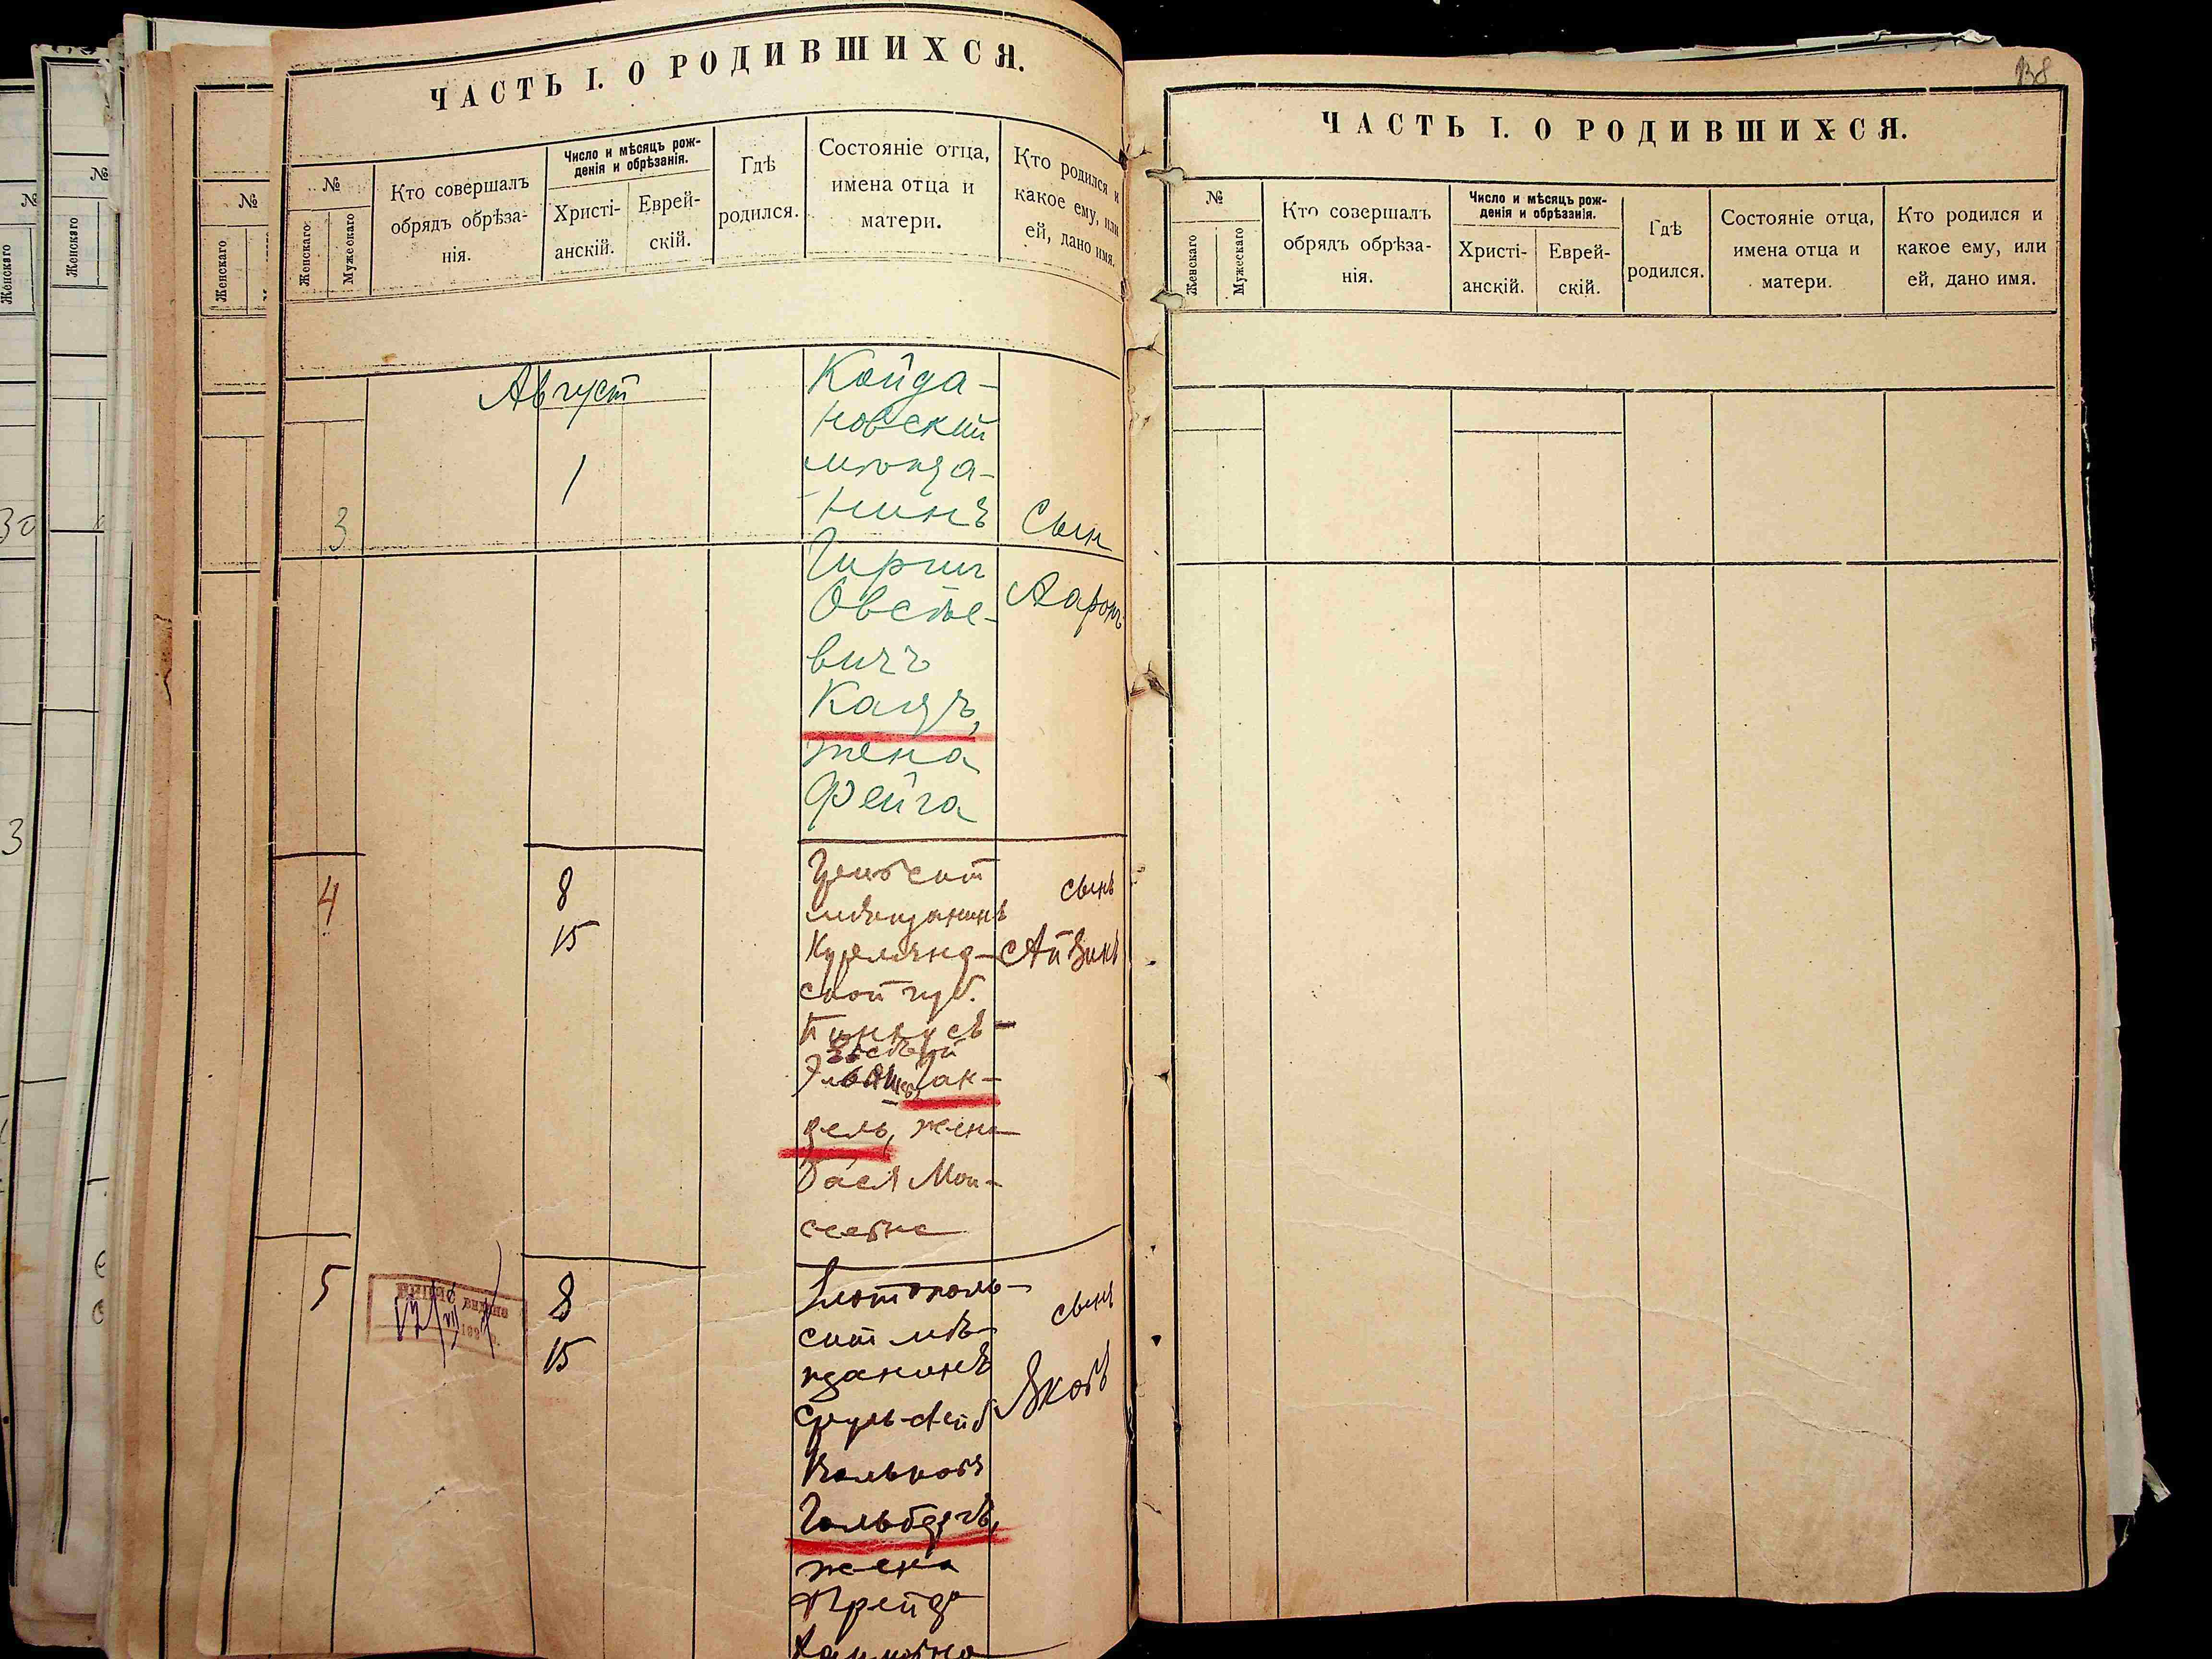 ЧАСТЬ I. О РОДИВШИХСЯ.
№
Женскаго.
Мужескаго
Кто совершалъ
обрядъ обрѣза-
нія.
Число и мѣсяцъ рож-
денія и обрѣзанія.
Христі-
анскій.
Еврей-
скій.
Гдѣ
родился.
Состояніе отца,
имена отца и
матери.
Кто родился и
какое ему, или
ей, дано имя.
Август
3
1
Койда-
новскій
мѣща-
нинъ
Гирш
Овсѣе-
вичъ
Кацъ,
жена
Фейга
Сын
Ааронъ
4
8
15
мѣщанинъ
Курлянд-
ской губ.
Пинкусъ-
дель, жена
Бася Мои-
сеевна
сынъ
Айзикъ
5
8
15
Златополь-
скій мѣ-
щанинъ
Сруль-Лейб
Гольбергъ,
жена
Прейда
сынъ
Яковъ
138
ЧАСТЬ I. О РОДИВШИХСЯ.
№
Женскаго
Мужескаго
Кто совершалъ
обрядъ обрѣза-
нія.
Число и мѣсяцъ рож-
денія и обрѣзанія.
Христі-
анскій.
Еврей-
скій.
Гдѣ
родился.
Состояніе отца,
имена отца и
матери.
Кто родился и
какое ему, или
ей, дано имя.